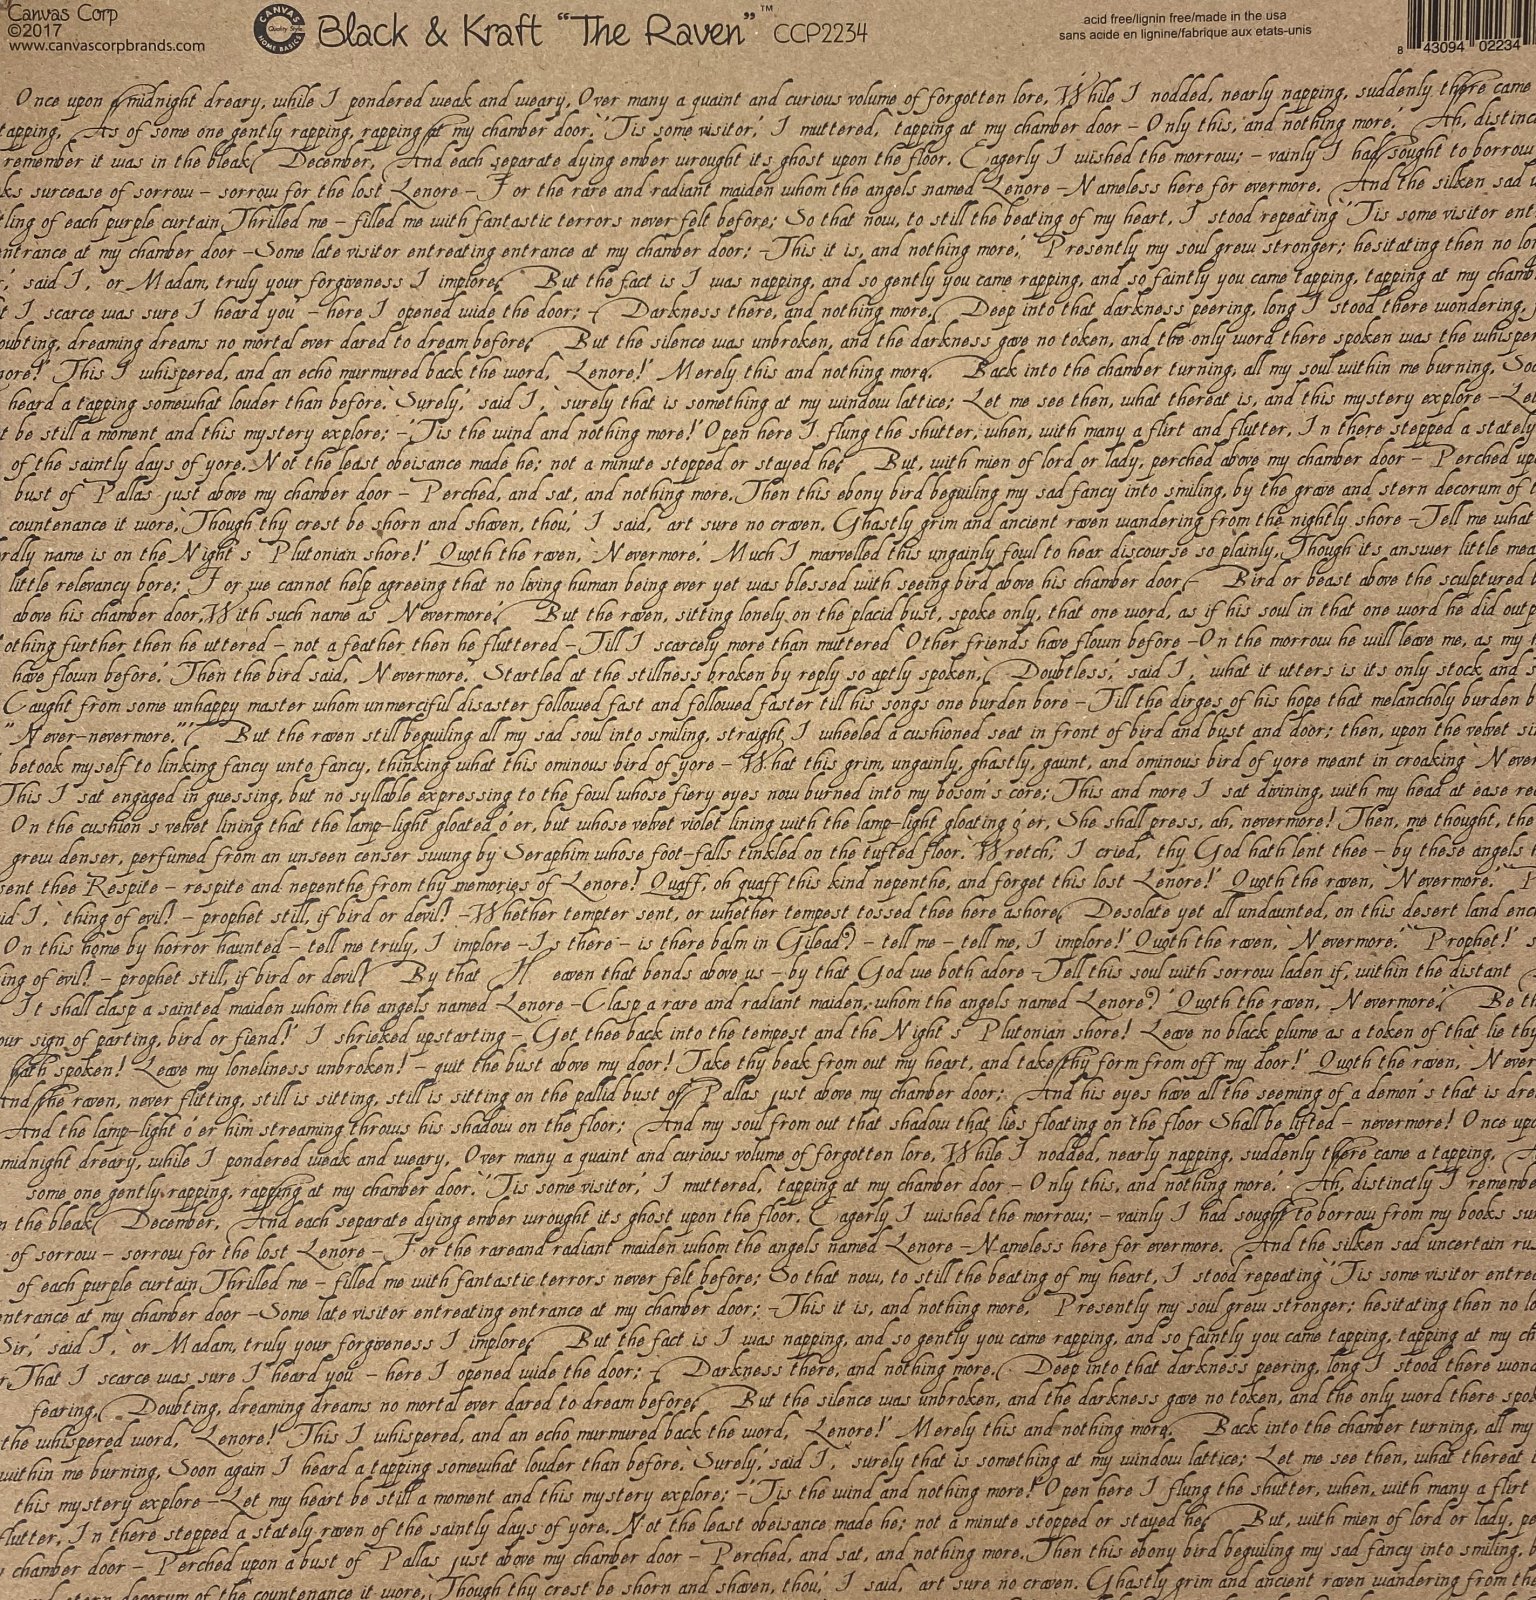 Canvas Corp
©2017
www.canvascorpbrands.com
CANVAS
Quality Style
HOME BASICS
Black & Kraft “The Raven”™ CCP2234
acid free/lignin free/made in the usa
sans acide en lignine/fabrique aux etats-unis
8 43094 02234
Once upon a midnight dreary, while I pondered weak and weary, Over many a quaint and curious volume of forgotten lore, While I nodded, nearly napping, suddenly there came
tapping, As of some one gently rapping, rapping at my chamber door. `'Tis some visitor,' I muttered, `tapping at my chamber door - Only this, and nothing more.' Ah, distinc
remember it was in the bleak December, And each separate dying ember wrought its ghost upon the floor. Eagerly I wished the morrow; - vainly I had sought to borrow
ks surcease of sorrow - sorrow for the lost Lenore - For the rare and radiant maiden whom the angels named Lenore - Nameless here for evermore. And the silken sad
tling of each purple curtain Thrilled me - filled me with fantastic terrors never felt before; So that now, to still the beating of my heart, I stood repeating `'Tis some visitor ent
entrance at my chamber door - Some late visitor entreating entrance at my chamber door; - This it is, and nothing more,' Presently my soul grew stronger; hesitating then no lon
,' said I, `or Madam, truly your forgiveness I implore; But the fact is I was napping, and so gently you came rapping, and so faintly you came tapping, tapping at my chamb
t I scarce was sure I heard you' - here I opened wide the door; - Darkness there, and nothing more. Deep into that darkness peering, long I stood there wondering,
oubting, dreaming dreams no mortal ever dared to dream before; But the silence was unbroken, and the darkness gave no token, and the only word there spoken was the whisper
nore!' This I whispered, and an echo murmured back the word, `Lenore!' Merely this and nothing more. Back into the chamber turning, all my soul within me burning, Soo
heard a tapping somewhat louder than before. `Surely,' said I, `surely that is something at my window lattice; Let me see then, what thereat is, and this mystery explore - Let
t be still a moment and this mystery explore; - 'Tis the wind and nothing more!' Open here I flung the shutter, when, with many a flirt and flutter, In there stepped a stately
of the saintly days of yore. Not the least obeisance made he; not a minute stopped or stayed he; But, with mien of lord or lady, perched above my chamber door - Perched up
bust of Pallas just above my chamber door - Perched, and sat, and nothing more. Then this ebony bird beguiling my sad fancy into smiling, by the grave and stern decorum of t
countenance it wore, `Though thy crest be shorn and shaven, thou,' I said, `art sure no craven. Ghastly grim and ancient raven wandering from the nightly shore - Tell me what
rdly name is on the Night's Plutonian shore!' Quoth the raven, `Nevermore.' Much I marvelled this ungainly fowl to hear discourse so plainly, Though its answer little mea
little relevancy bore; For we cannot help agreeing that no living human being ever yet was blessed with seeing bird above his chamber door - Bird or beast above the sculptured
above his chamber door, With such name as `Nevermore.' But the raven, sitting lonely on the placid bust, spoke only, that one word, as if his soul in that one word he did outp
othing further then he uttered - not a feather then he fluttered - Till I scarcely more than muttered `Other friends have flown before - On the morrow he will leave me, as my
have flown before.' Then the bird said, `Nevermore.' Startled at the stillness broken by reply so aptly spoken, `Doubtless,' said I, `what it utters is its only stock and s
Caught from some unhappy master whom unmerciful disaster followed fast and followed faster till his songs one burden bore - Till the dirges of his hope that melancholy burden
"Never-nevermore."' But the raven still beguiling all my sad soul into smiling, straight I wheeled a cushioned seat in front of bird and bust and door; then, upon the velvet sin
betook myself to linking fancy unto fancy, thinking what this ominous bird of yore - What this grim, ungainly, ghastly, gaunt, and ominous bird of yore meant in croaking `Never
This I sat engaged in guessing, but no syllable expressing to the fowl whose fiery eyes now burned into my bosom's core; This and more I sat divining, with my head at ease rec
On the cushion's velvet lining that the lamp-light gloated o'er, but whose velvet violet lining with the lamp-light gloating o'er, She shall press, ah, nevermore! Then, me thought, the
grew denser, perfumed from an unseen censer swung by Seraphim whose foot-falls tinkled on the tufted floor. `Wretch,' I cried, `thy God hath lent thee - by these angels
sent thee Respite - respite and nepenthe from thy memories of Lenore! Quaff, oh quaff this kind nepenthe, and forget this lost Lenore!' Quoth the raven, `Nevermore.' `P
id I, `thing of evil! - prophet still, if bird or devil! - Whether tempter sent, or whether tempest tossed thee here ashore, Desolate yet all undaunted, on this desert land enc
On this home by horror haunted - tell me truly, I implore - Is there - is there balm in Gilead? - tell me - tell me, I implore!' Quoth the raven, `Nevermore.' `Prophet!' s
ing of evil! - prophet still, if bird or devil! By that H eaven that bends above us - by that God we both adore - Tell this soul with sorrow laden if, within the distant
It shall clasp a sainted maiden whom the angels named Lenore - Clasp a rare and radiant maiden, whom the angels named Lenore?' Quoth the raven, `Nevermore.' `Be th
our sign of parting, bird or fiend!' I shrieked upstarting - `Get thee back into the tempest and the Night's Plutonian shore! Leave no black plume as a token of that lie thy
hath spoken! Leave my loneliness unbroken! - quit the bust above my door! Take thy beak from out my heart, and take thy form from off my door!' Quoth the raven, `Never
And the raven, never flitting, still is sitting, still is sitting on the pallid bust of Pallas just above my chamber door; And his eyes have all the seeming of a demon's that is dre
And the lamp-light o'er him streaming throws his shadow on the floor; And my soul from out that shadow that lies floating on the floor Shall be lifted - nevermore! Once upo
midnight dreary, while I pondered weak and weary, Over many a quaint and curious volume of forgotten lore, While I nodded, nearly napping, suddenly there came a tapping,
some one gently rapping, rapping at my chamber door. `'Tis some visitor,' I muttered, `tapping at my chamber door - Only this, and nothing more.' Ah, distinctly I remembe
n the bleak December, And each separate dying ember wrought its ghost upon the floor. Eagerly I wished the morrow; - vainly I had sought to borrow from my books sur
of sorrow - sorrow for the lost Lenore - For the rareand radiant maiden whom the angels named Lenore - Nameless here for evermore. And the silken sad uncertain rus
of each purple curtain Thrilled me - filled me with fantastic terrors never felt before; So that now, to still the beating of my heart, I stood repeating `'Tis some visitor entrea
entrance at my chamber door - Some late visitor entreating entrance at my chamber door; - This it is, and nothing more,' Presently my soul grew stronger; hesitating then no lo
Sir,' said I, `or Madam, truly your forgiveness I implore; But the fact is I was napping, and so gently you came rapping, and so faintly you came tapping, tapping at my ch
r, That I scarce was sure I heard you' - here I opened wide the door; - Darkness there, and nothing more. Deep into that darkness peering, long I stood there wond
fearing, Doubting, dreaming dreams no mortal ever dared to dream before; But the silence was unbroken, and the darkness gave no token, and the only word there spok
the whispered word, `Lenore!' This I whispered, and an echo murmured back the word, `Lenore!' Merely this and nothing more. Back into the chamber turning, all my
within me burning, Soon again I heard a tapping somewhat louder than before. `Surely,' said I, `surely that is something at my window lattice; Let me see then, what thereat
this mystery explore - Let my heart be still a moment and this mystery explore; - 'Tis the wind and nothing more!' Open here I flung the shutter, when, with many a flirt
flutter, In there stepped a stately raven of the saintly days of yore. Not the least obeisance made he; not a minute stopped or stayed he; But, with mien of lord or lady, pe
chamber door - Perched upon a bust of Pallas just above my chamber door - Perched, and sat, and nothing more. Then this ebony bird beguiling my sad fancy into smiling, b
stern decorum of the countenance it wore, `Though thy crest be shorn and shaven, thou,' I said, `art sure no craven. Ghastly grim and ancient raven wandering from the